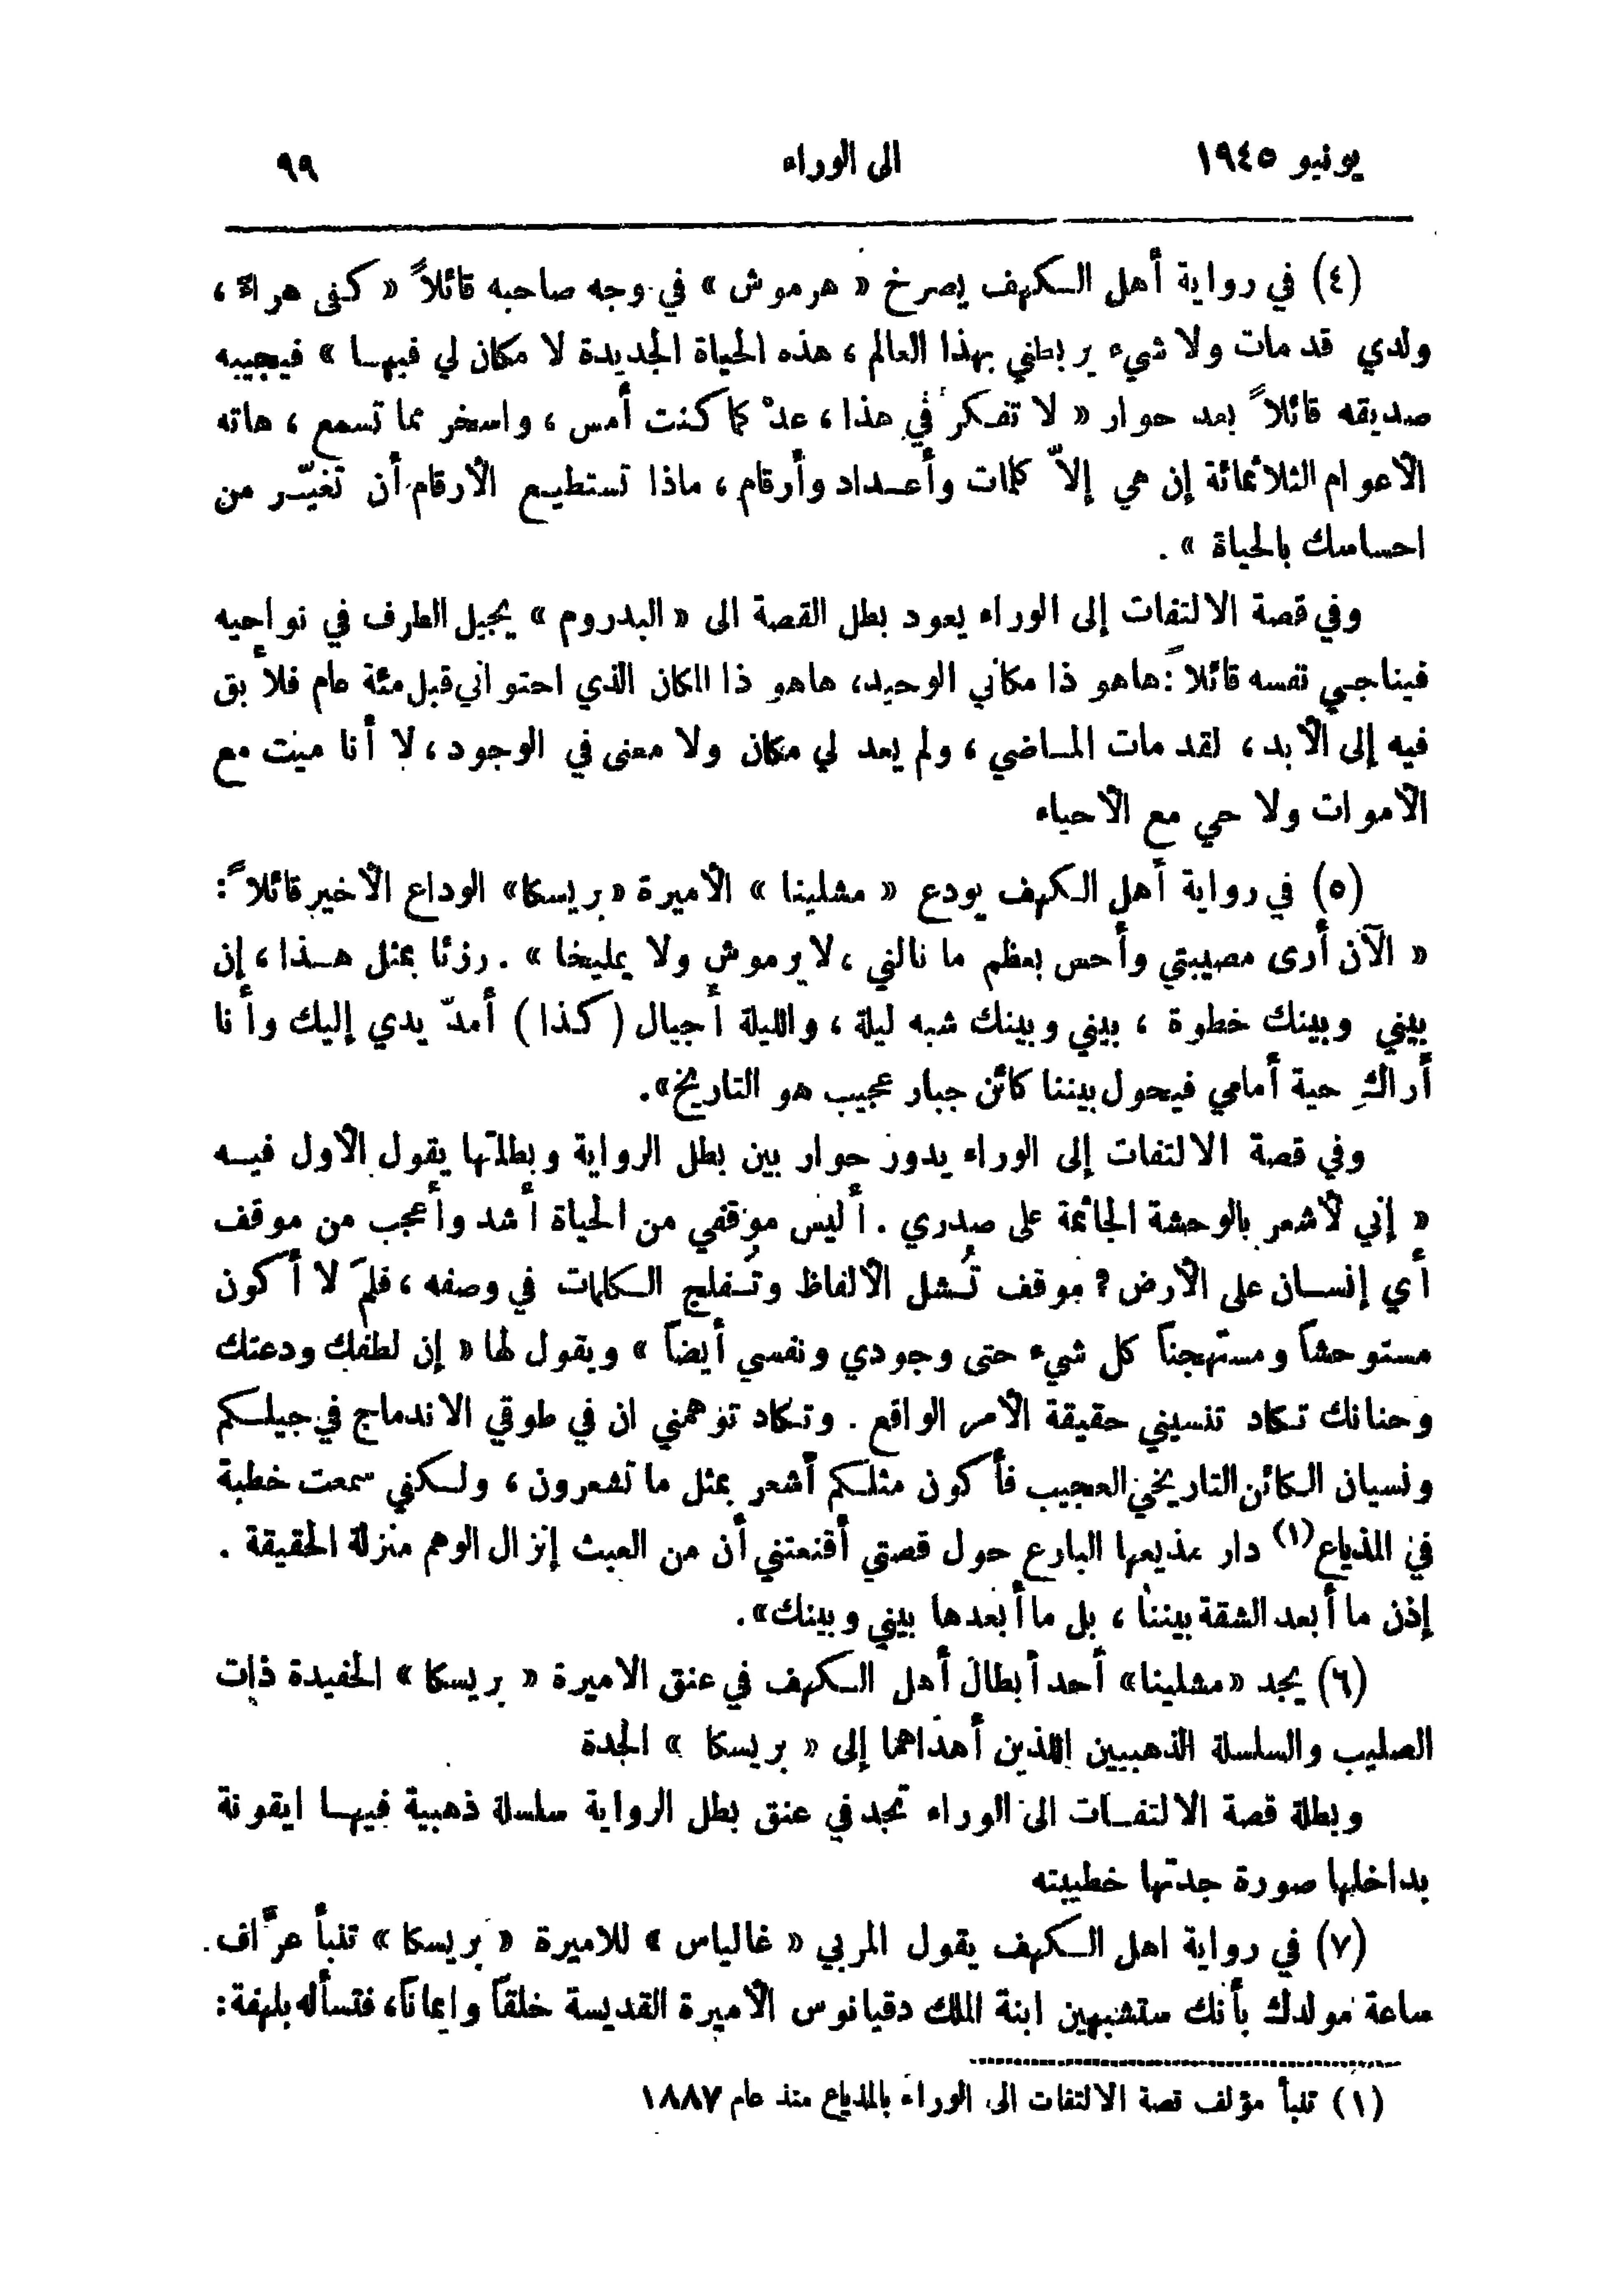 يونيو ١٩٤٥ الى الوراء ٩٩
(٤) في رواية أهل الكهف يصرخ « هرموش » في وجه صاحبه قائلاً « كفى هراءً ،
ولدي قد مات ولا شيء يربطني بهذا العالم ، هذه الحياة الجديدة لا مكان لي فيها » فيجيبه
صديقه قائلاً بعد حوار « لا تفكر في هذا ، عدْ كما كنت أمس ، واسخر مما تسمع ، هاته
الأعوام الثلاثمائة إن هي إلاّ كلمات وأعداد وأرقام ، ماذا تستطيع الأرقام أن تغيّر من
احساسك بالحياة » .
وفي قصة الالتفات إلى الوراء يعود بطل القصة الى « البدروم » يجيل الطرف في نواحيه
فيناجي نفسه قائلاً : هاهو ذا مكاني الوحيد، هاهو ذا المكان الذي احتواني قبل مئة عام فلأبق
فيه إلى الأبد ، لقد مات الماضي ، ولم يعد لي مكان ولا معنى في الوجود ، لا أنا ميت مع
الأموات ولا حي مع الأحياء
(٥) في رواية أهل الكهف يودع « مشلينا » الأميرة «بريسكا» الوداع الأخير قائلاً :
« الآن أرى مصيبتي وأحس بعظم ما نالني ، لا يرموش ولا يمليخا » . رزئا بمثل هذا ، إن
بيني وبينك خطوة ، بيني وبينك شبه ليلة ، والليلة أجيال ( كذا ) أمدّ يدي إليك وأنا
أراكِ حية أمامي فيحول بيننا كائن جبار عجيب هو التاريخ».
وفي قصة الالتفات إلى الوراء يدور حوار بين بطل الرواية وبطلتها يقول الأول فيه
« إني لأشعر بالوحشة الجاثمة على صدري . أليس موقفي من الحياة أشد وأعجب من موقف
أي إنسان على الأرض ؟ موقف تُشل الألفاظ وتُفلج الكلمات في وصفه ، فلمَ لا أكون
مستوحشاً ومستهجناً كل شيء حتى وجودي ونفسي أيضاً » ويقول لها « إن لطفك ودعتك
وحنانك تكاد تنسيني حقيقة الأمر الواقع . وتكاد توهمني ان في طوقي الاندماج في جيلكم
ونسيان الكائن التاريخي العجيب فأكون مثلكم أشعر بمثل ما تشعرون ، ولكني سمعت خطبة
في المذياع (١) دار مذيعها البارع حول قصتي أقنعتني أن من العبث إنزال الوهم منزلة الحقيقة .
إذن ما أبعد الشقة بيننا ، بل ما أبعدها بيني وبينك».
(٦) يجد «مشلينا» أحد أبطال أهل الكهف في عنق الاميرة « بريسكا » الحفيدة ذات
الصليب والسلسلة الذهبيين اللذين أهداهما إلى « بريسكا » الجدة
وبطلة قصة الالتفات الى الوراء تجد في عنق بطل الرواية سلسلة ذهبية فيها ايقونة
بداخلها صورة جدتها خطيبته
(٧) في رواية اهل الكهف يقول المربي « غالياس » للاميرة « بريسكا » تنبأ عرَّاف
ساعة مولدك بأنك ستشبهين ابنة الملك دقيانوس الأميرة القديسة خلقاً وايماناً، فتسأله بلهفة :
(١) تنبأ مؤلف قصة الالتفات الى الوراء بالمذياع منذ عام ١٨٨٧